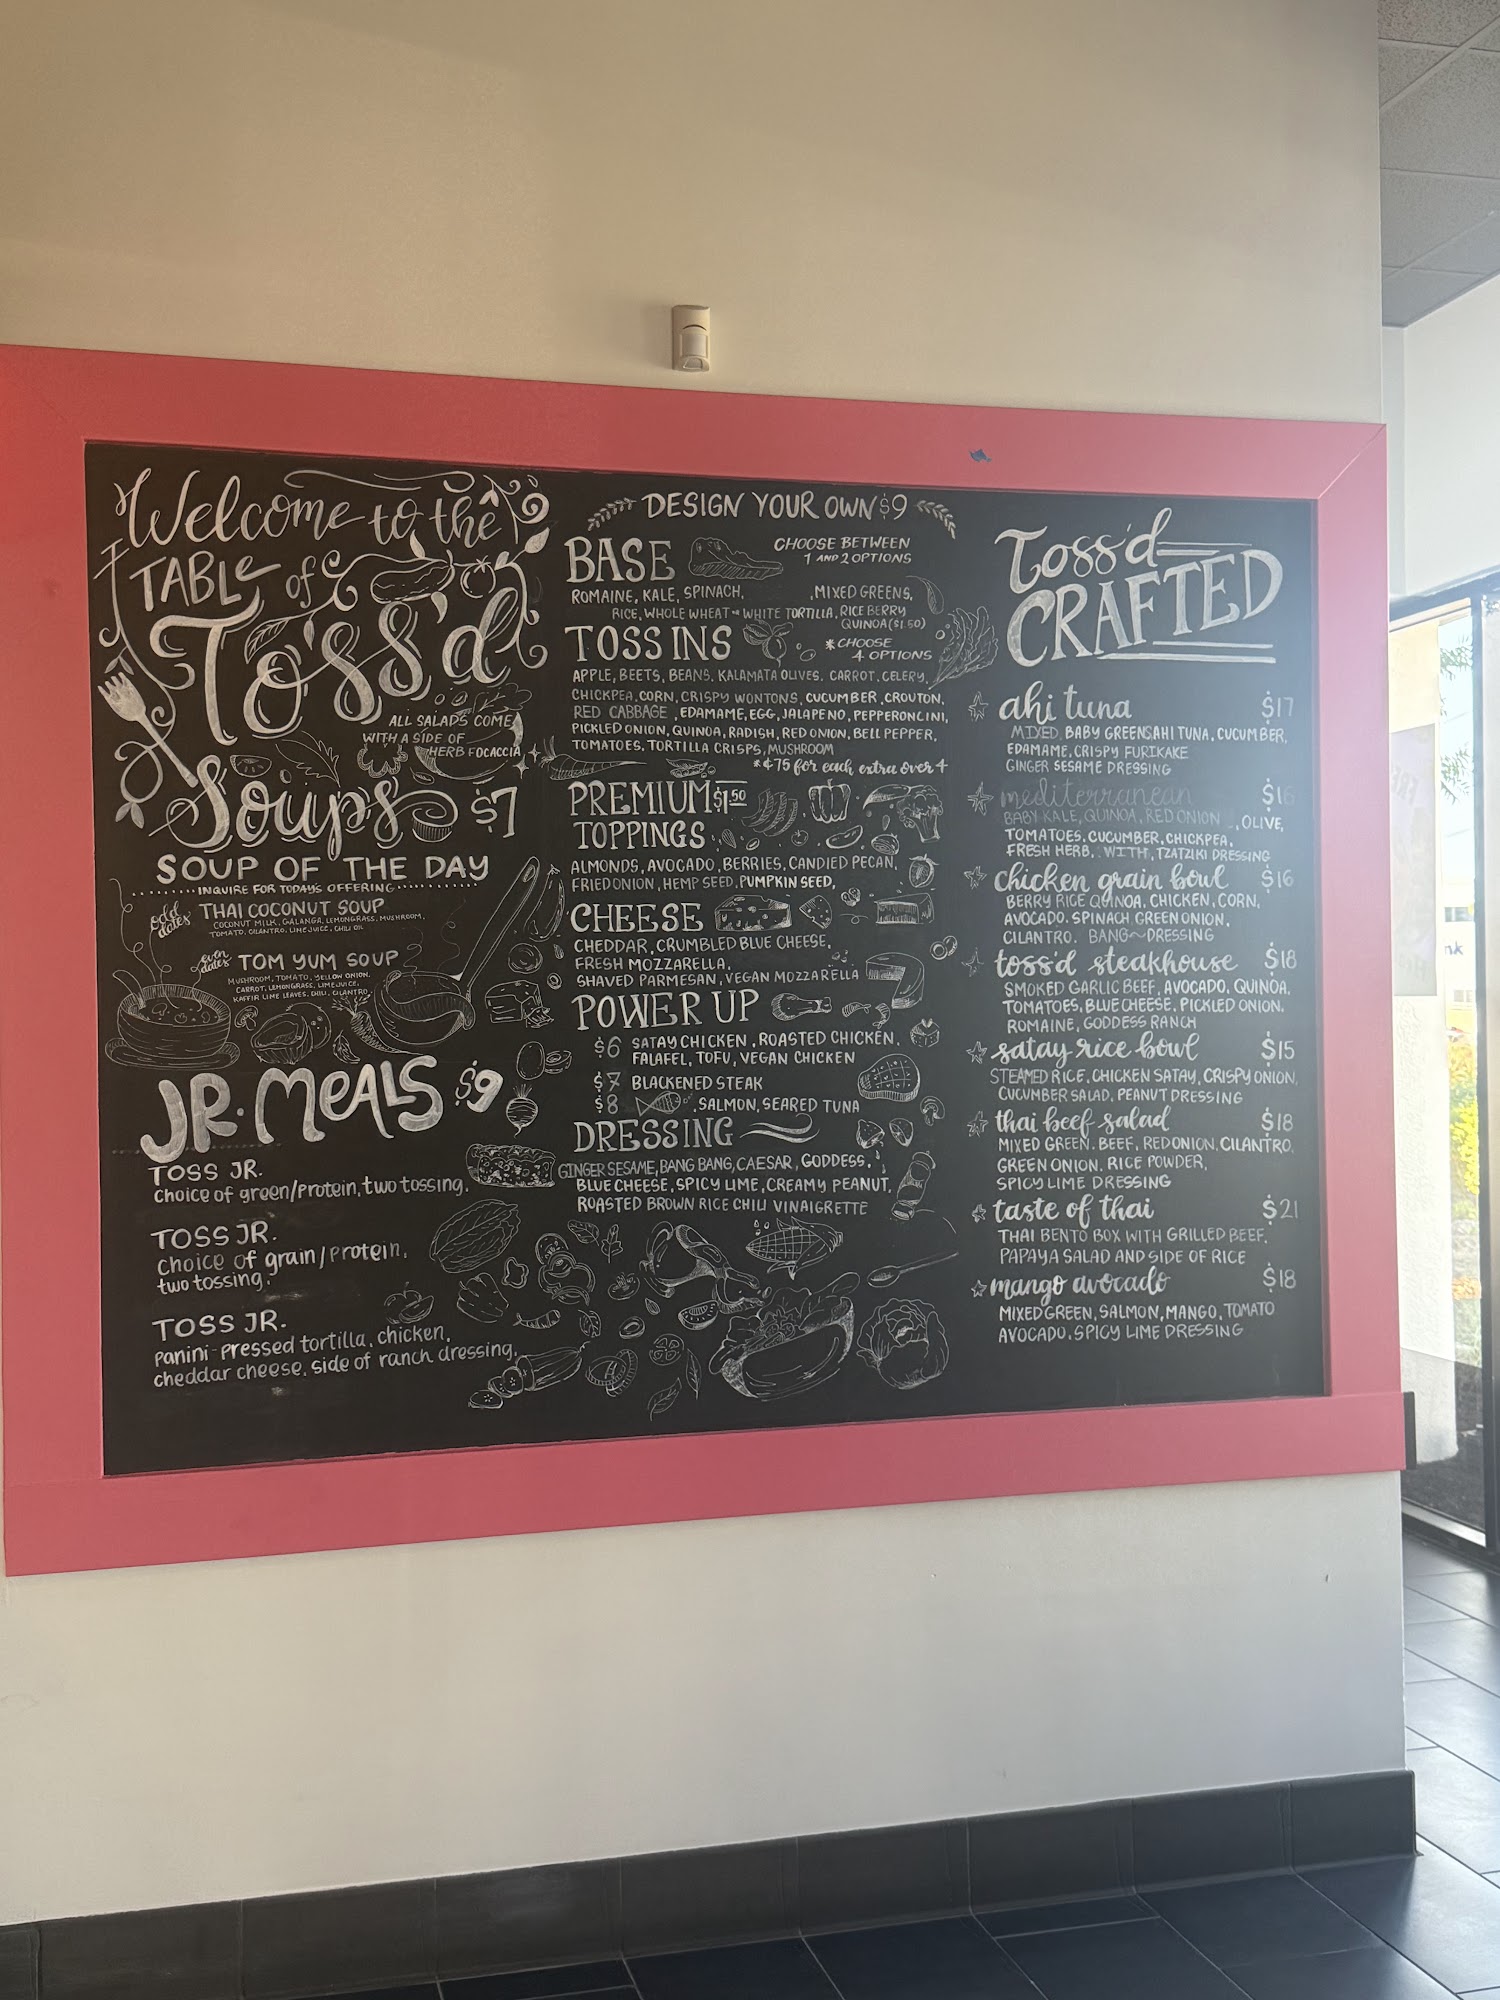 Welcome to the
TABLE of
Toss'd
ALL SALADS COME
WITH A SIDE OF
HERB FOCACCIA
Soups $7
SOUP OF THE DAY
INQUIRE FOR TODAY'S OFFERING
odd dates THAI COCONUT SOUP
COCONUT MILK, GALANGA, LEMONGRASS, MUSHROOM,
TOMATO, CILANTRO, LIME JUICE, CHILI OIL
even dates TOM YUM SOUP
MUSHROOM, TOMATO, YELLOW ONION,
CARROT, LEMONGRASS, LIME JUICE,
KAFFIR LIME LEAVES, CHILI, CILANTRO
JR. MEALS $9
TOSS JR.
choice of green/protein, two tossing.
TOSS JR.
choice of grain/protein,
two tossing.
TOSS JR.
panini-pressed tortilla, chicken,
cheddar cheese, side of ranch dressing.
DESIGN YOUR OWN $9
BASE
CHOOSE BETWEEN
1 AND 2 OPTIONS
ROMAINE, KALE, SPINACH, , MIXED GREENS,
RICE, WHOLE WHEAT WHITE TORTILLA, RICE BERRY
QUINOA ($1.50)
TOSS INS
*CHOOSE
4 OPTIONS
APPLE, BEETS, BEANS, KALAMATA OLIVES, CARROT, CELERY,
CHICKPEA, CORN, CRISPY WONTONS, CUCUMBER, CROUTON,
RED CABBAGE, EDAMAME, EGG, JALAPENO, PEPPERONCINI,
PICKLED ONION, QUINOA, RADISH, RED ONION, BELL PEPPER,
TOMATOES, TORTILLA CRISPS, MUSHROOM
*¢75 for each extra over 4
PREMIUM $1.50
TOPPINGS
ALMONDS, AVOCADO, BERRIES, CANDIED PECAN,
FRIED ONION, HEMP SEED, PUMPKIN SEED,
CHEESE
CHEDDAR, CRUMBLED BLUE CHEESE,
FRESH MOZZARELLA,
SHAVED PARMESAN, VEGAN MOZZARELLA
POWER UP
$6 SATAY CHICKEN, ROASTED CHICKEN,
FALAFEL, TOFU, VEGAN CHICKEN
$7 BLACKENED STEAK
$8 , SALMON, SEARED TUNA
DRESSING
GINGER SESAME, BANG BANG, CAESAR, GODDESS,
BLUE CHEESE, SPICY LIME, CREAMY PEANUT,
ROASTED BROWN RICE CHILI VINAIGRETTE
Toss'd
CRAFTED
ahi tuna $17
MIXED, BABY GREENS AHI TUNA, CUCUMBER,
EDAMAME, CRISPY FURIKAKE
GINGER SESAME DRESSING
mediterranean $16
BABY KALE, QUINOA, RED ONION , OLIVE,
TOMATOES, CUCUMBER, CHICKPEA,
FRESH HERB, WITH, TZATZIKI DRESSING
chicken grain bowl $16
BERRY RICE QUINOA, CHICKEN, CORN,
AVOCADO, SPINACH, GREEN ONION,
CILANTRO. BANG~DRESSING
toss'd steakhouse $18
SMOKED GARLIC BEEF, AVOCADO, QUINOA,
TOMATOES, BLUE CHEESE, PICKLED ONION,
ROMAINE, GODDESS RANCH
satay rice bowl $15
STEAMED RICE, CHICKEN SATAY, CRISPY ONION,
CUCUMBER SALAD, PEANUT DRESSING
thai beef salad $18
MIXED GREEN, BEEF, RED ONION, CILANTRO,
GREEN ONION, RICE POWDER,
SPICY LIME DRESSING
taste of thai $21
THAI BENTO BOX WITH GRILLED BEEF,
PAPAYA SALAD AND SIDE OF RICE
mango avocado $18
MIXED GREEN, SALMON, MANGO, TOMATO
AVOCADO, SPICY LIME DRESSING